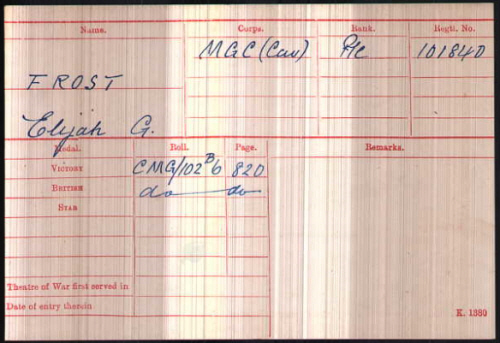 Name. Corps. Rank. Regtl. No.
MGC (Cav) Pte 101840
FROST
Elijah G.
Medal. Roll. Page. Remarks.
VICTORY CMG/102 B 6 820
BRITISH do do
STAR
Theatre of War first served in
Date of entry therein
K. 1380